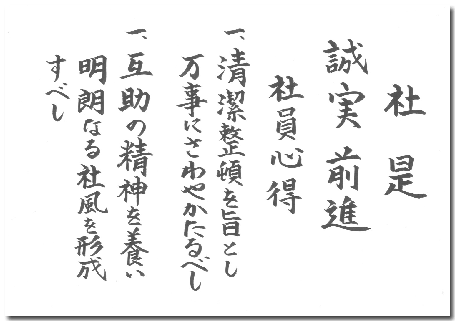 社是
誠実前進
社員心得
一、清潔整頓を旨とし
万事にさわやかたるべし
一、互助の精神を養い
明朗なる社風を形成
すべし